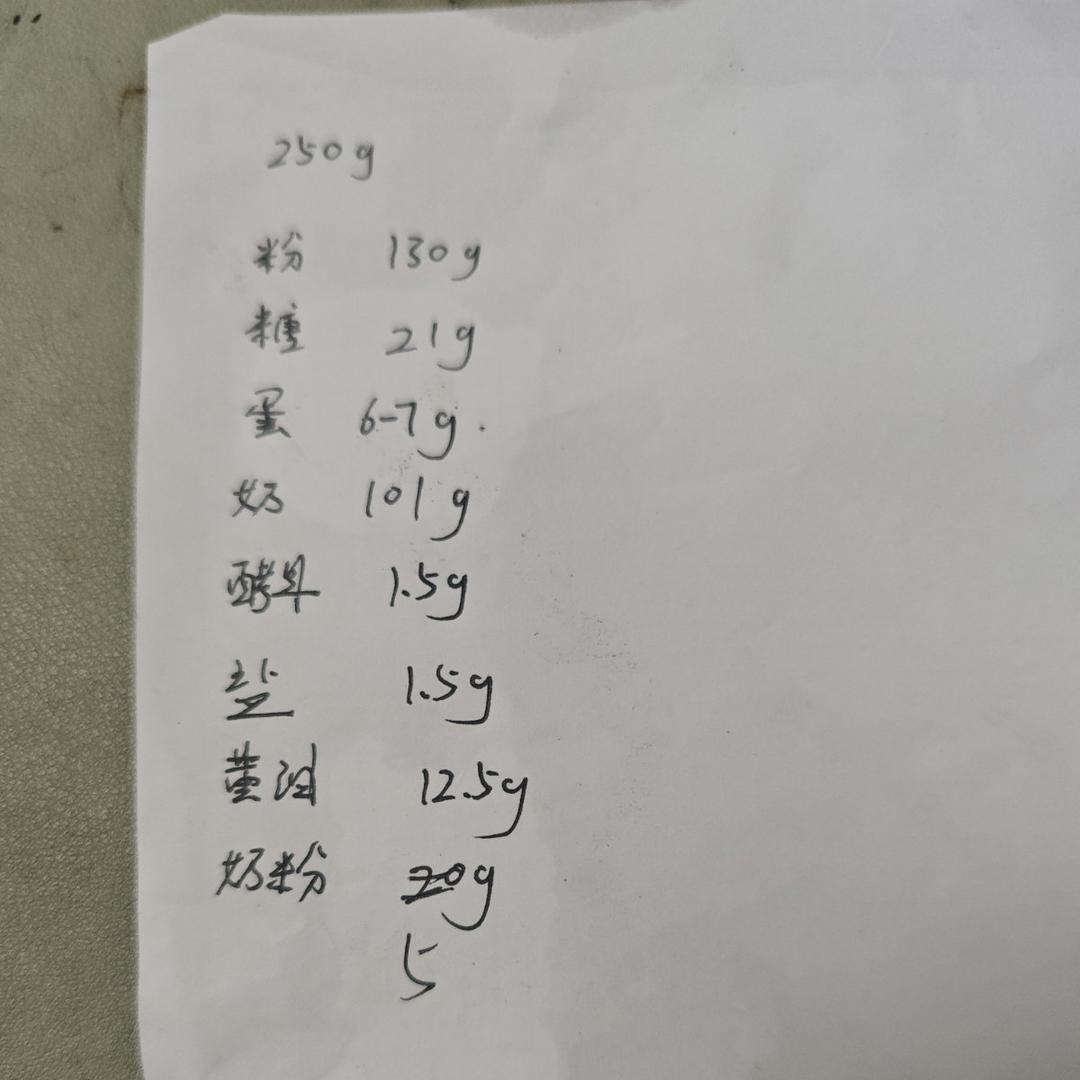 250g
粉 130g
糖 21g
蛋 6-7g.
奶 101g
酵母 1.5g
盐 1.5g
黄油 12.5g
奶粉 20g
5